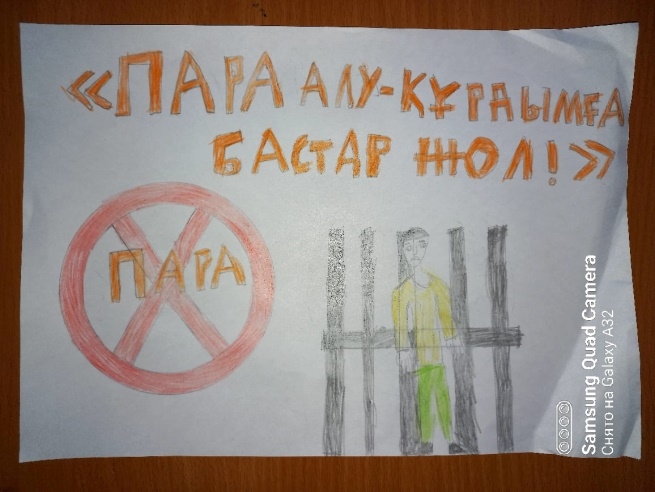 «ПАРА АЛУ-ҚҰРДЫМҒА
БАСТАР ЖОЛ!»
ПАРА
Samsung Quad Camera
Снято на Galaxy A32